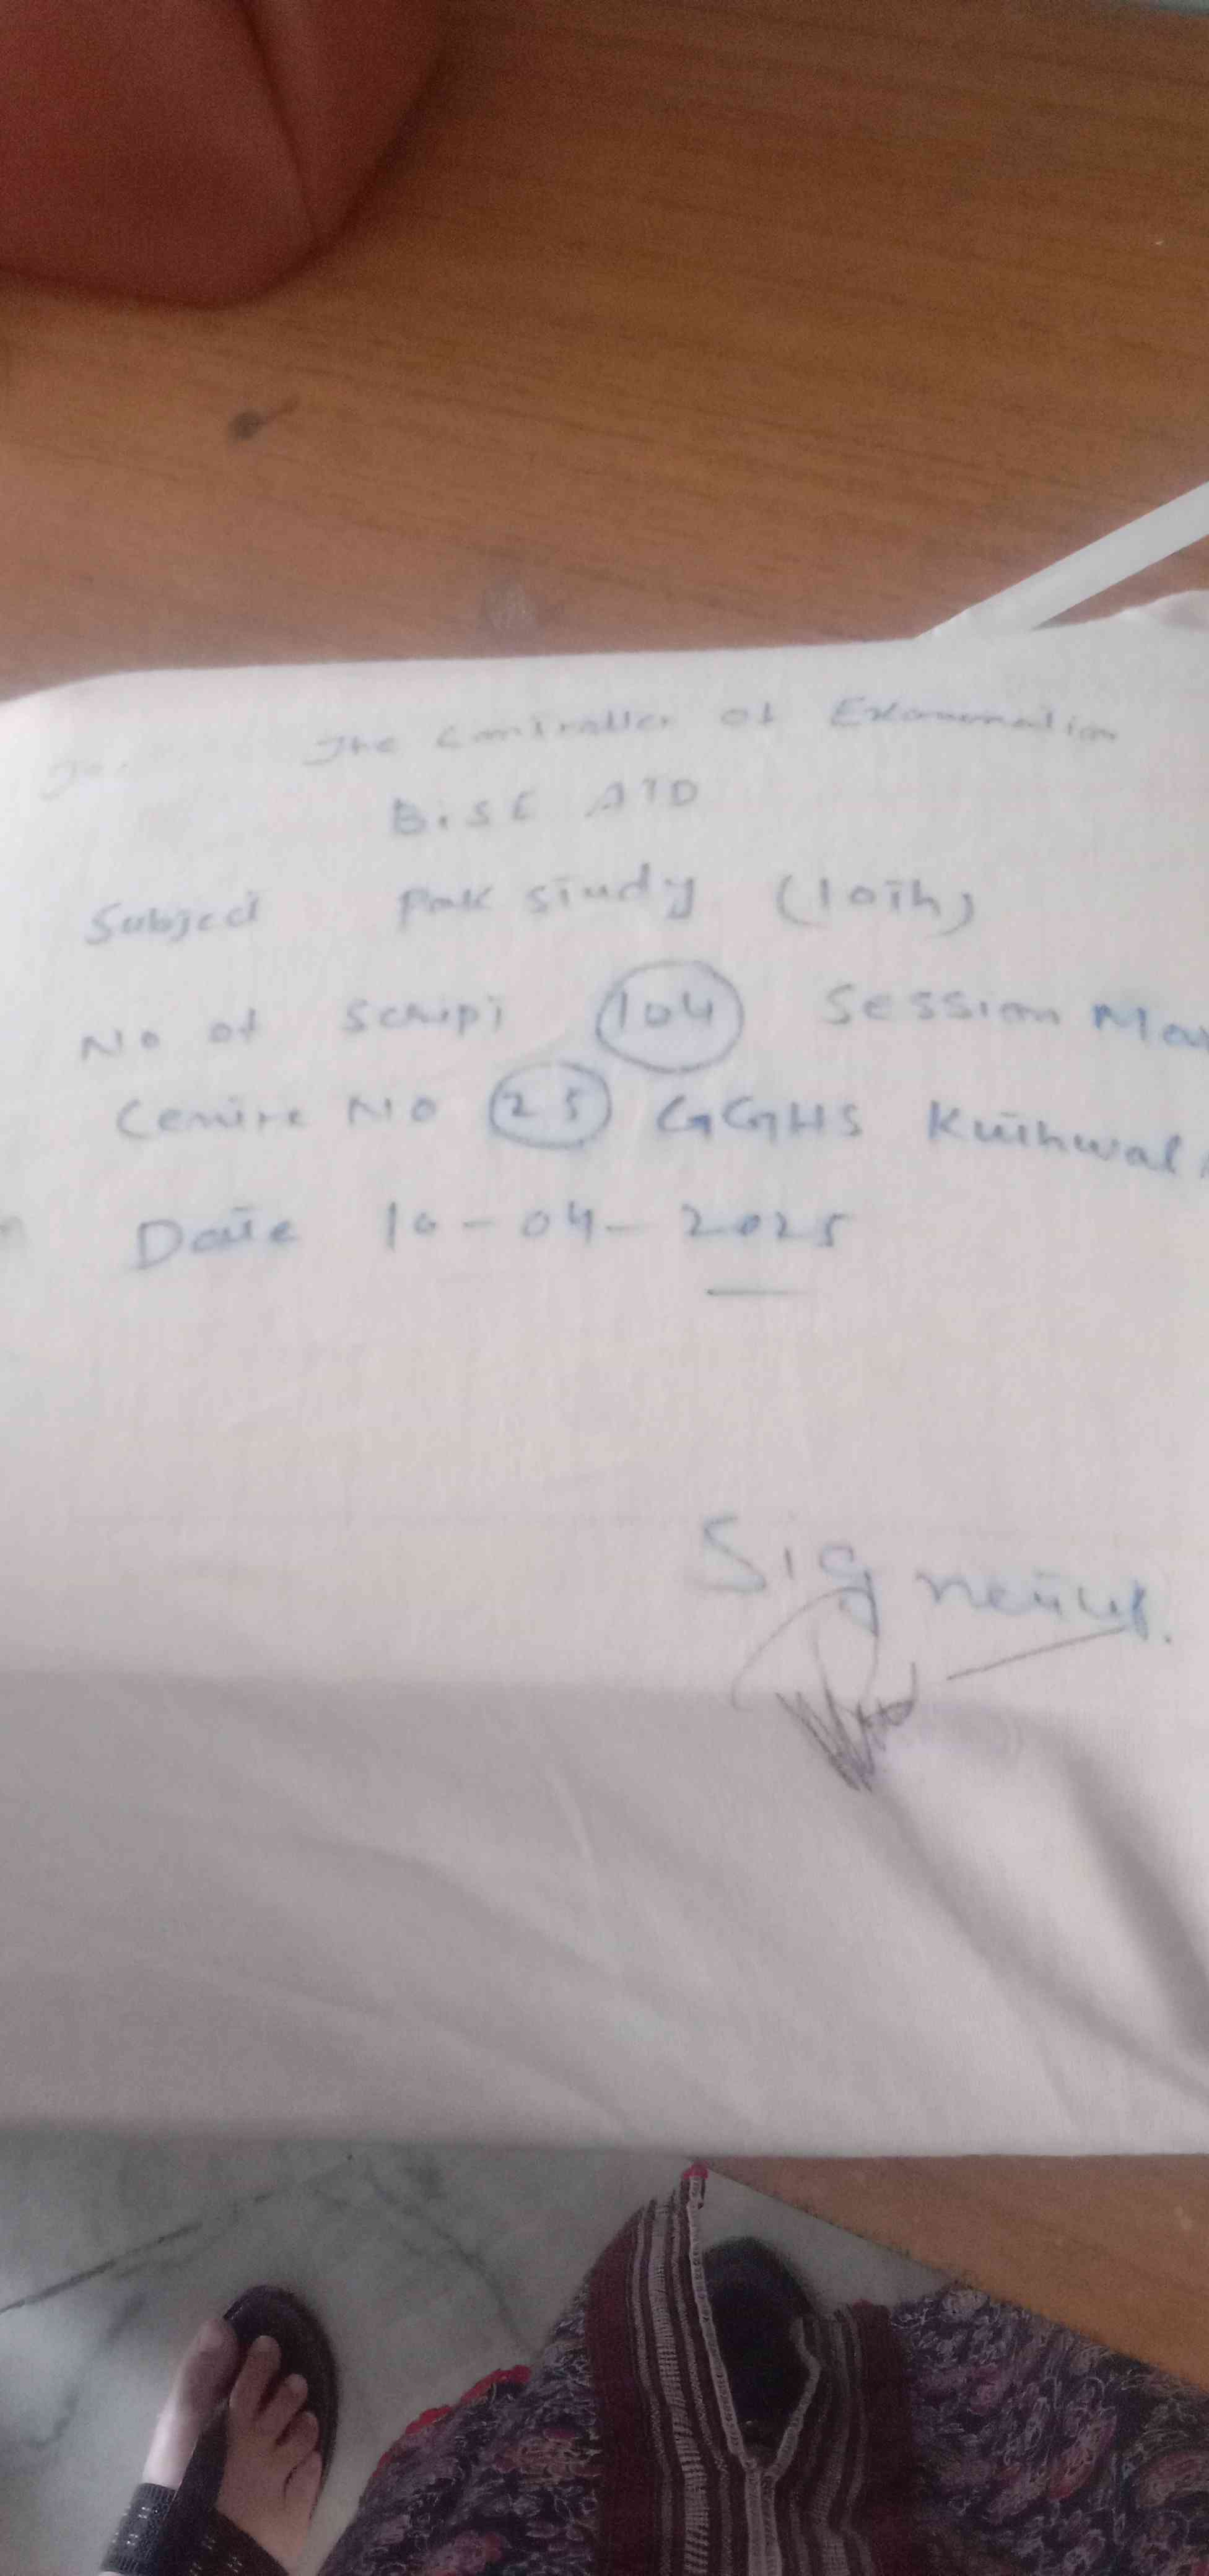 To. The Controller of Examination
B.I.S.E ATD
Subject Pak study (10th)
No of Script 104 Session Mar
Centre No 25 GGHS Kuthwal
Date 10-04-2025